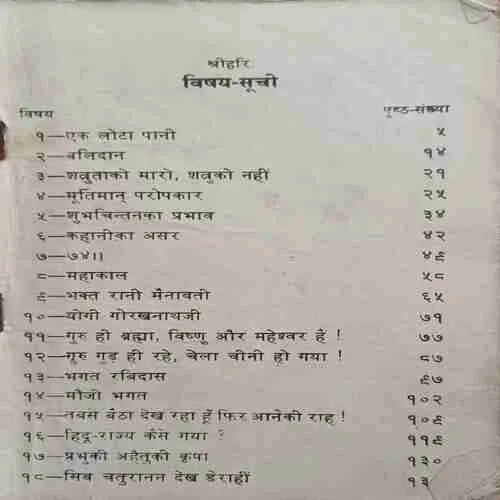 श्रीहरिः
विषय-सूची
विषय पृष्ठ-संख्या
१—एक लोटा पानी ५
२—बलिदान १४
३—शत्रुताको मारो, शत्रुको नहीं २१
४—मूर्तिमान् परोपकार २५
५—शुभचिन्तनका प्रभाव ३४
६—कहानीका असर ४२
७—७४।। ४९
८—महाकाल ५८
९—भक्त रानी मैनाबती ६५
१०—योगी गोरखनाथजी ७१
११—गुरु ही ब्रह्मा, विष्णु और महेश्वर हैं ! ७७
१२—गुरु गुड़ ही रहे, चेला चीनी हो गया ! ८७
१३—भगत रबिदास ९७
१४—मौजी भगत १०२
१५—तबसे बैठा देख रहा हूँ फिर आनेकी राह ! १०९
१६—हिंदू-राज्य कैसे गया ? ११९
१७—प्रभुकी अहैतुकी कृपा १३०
१८—सिव चतुरानन देख डेराहीं १३